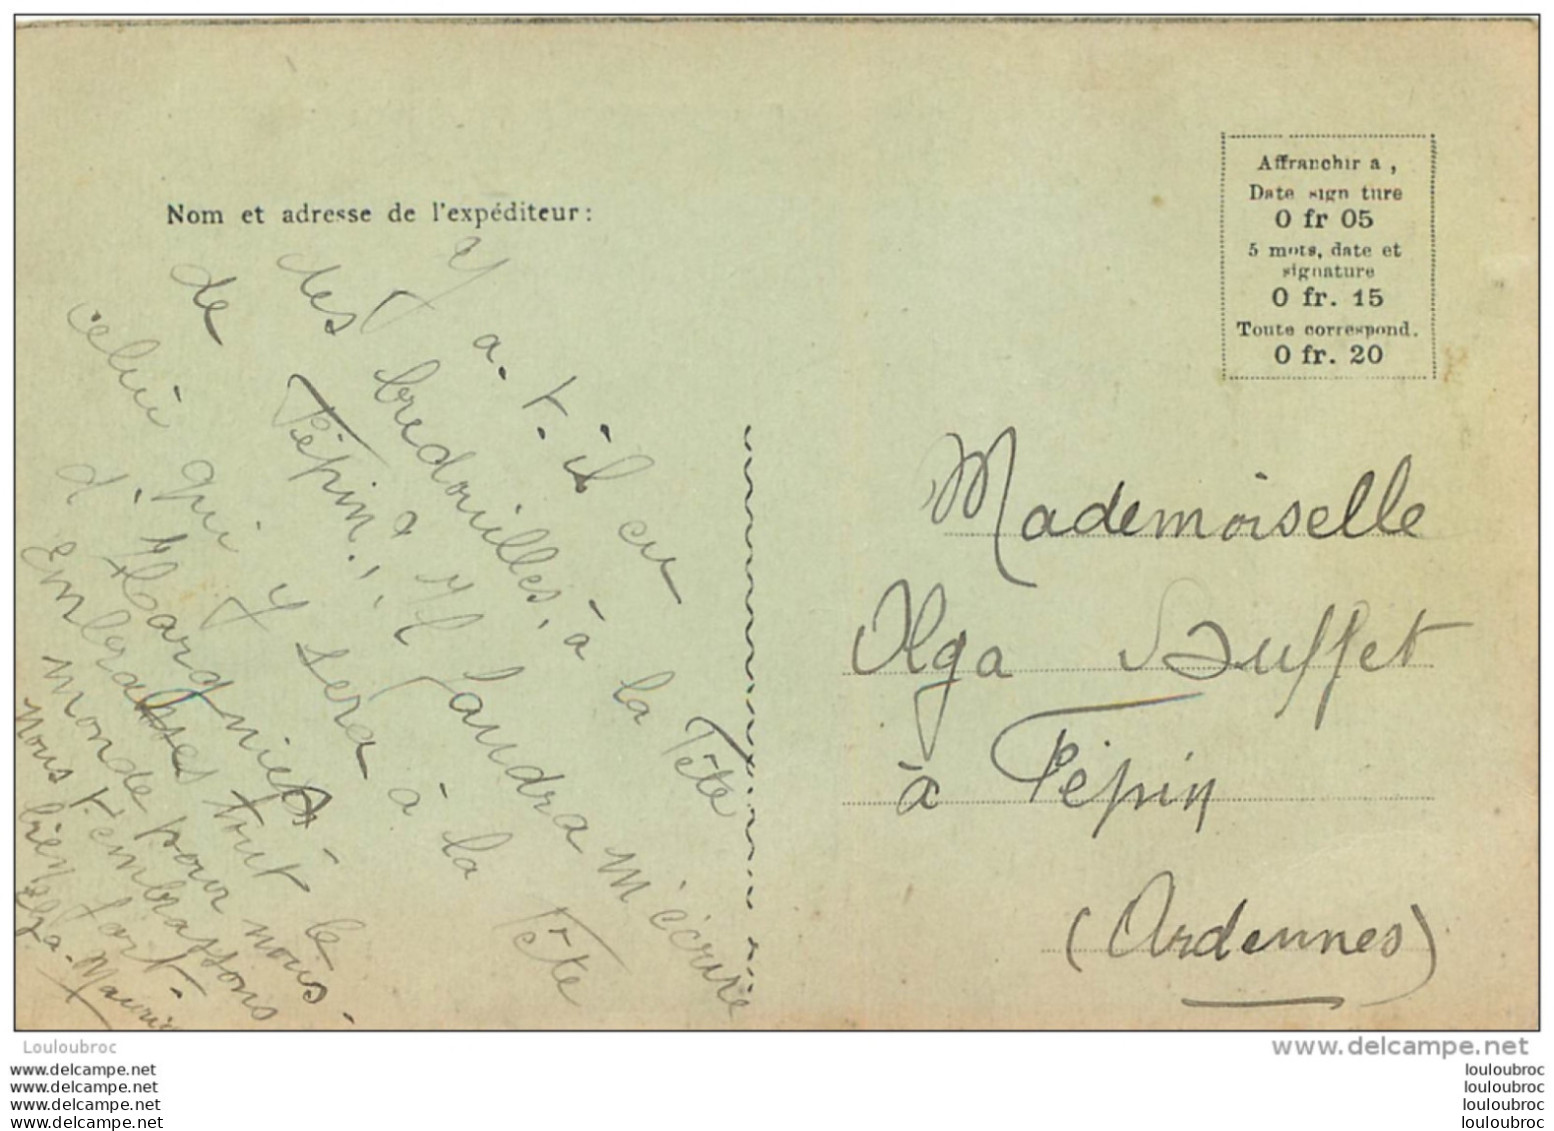 Nom et adresse de l'expéditeur:
Y a-t-il eu
des bredouilles, à la Fête
de Pépin? Il faudra m'écrire
celui qui y sera à la Fête
d'Hargnies-
Embrasses tout le
monde pour nous-
Nous t'embrassons
bien fort-
Elza-Mauric
Affranchir a,
Date sign ture
0 fr 05
5 mots, date et
signature
0 fr. 15
Toute correspond.
0 fr. 20
Mademoiselle
Olga Buffet
à Pépin
(Ardennes)
Louloubroc
www.delcampe.net
www.delcampe.net
www.delcampe.net
www.delcampe.net
www.delcampe.net
louloubroc
louloubroc
louloubroc
louloubroc